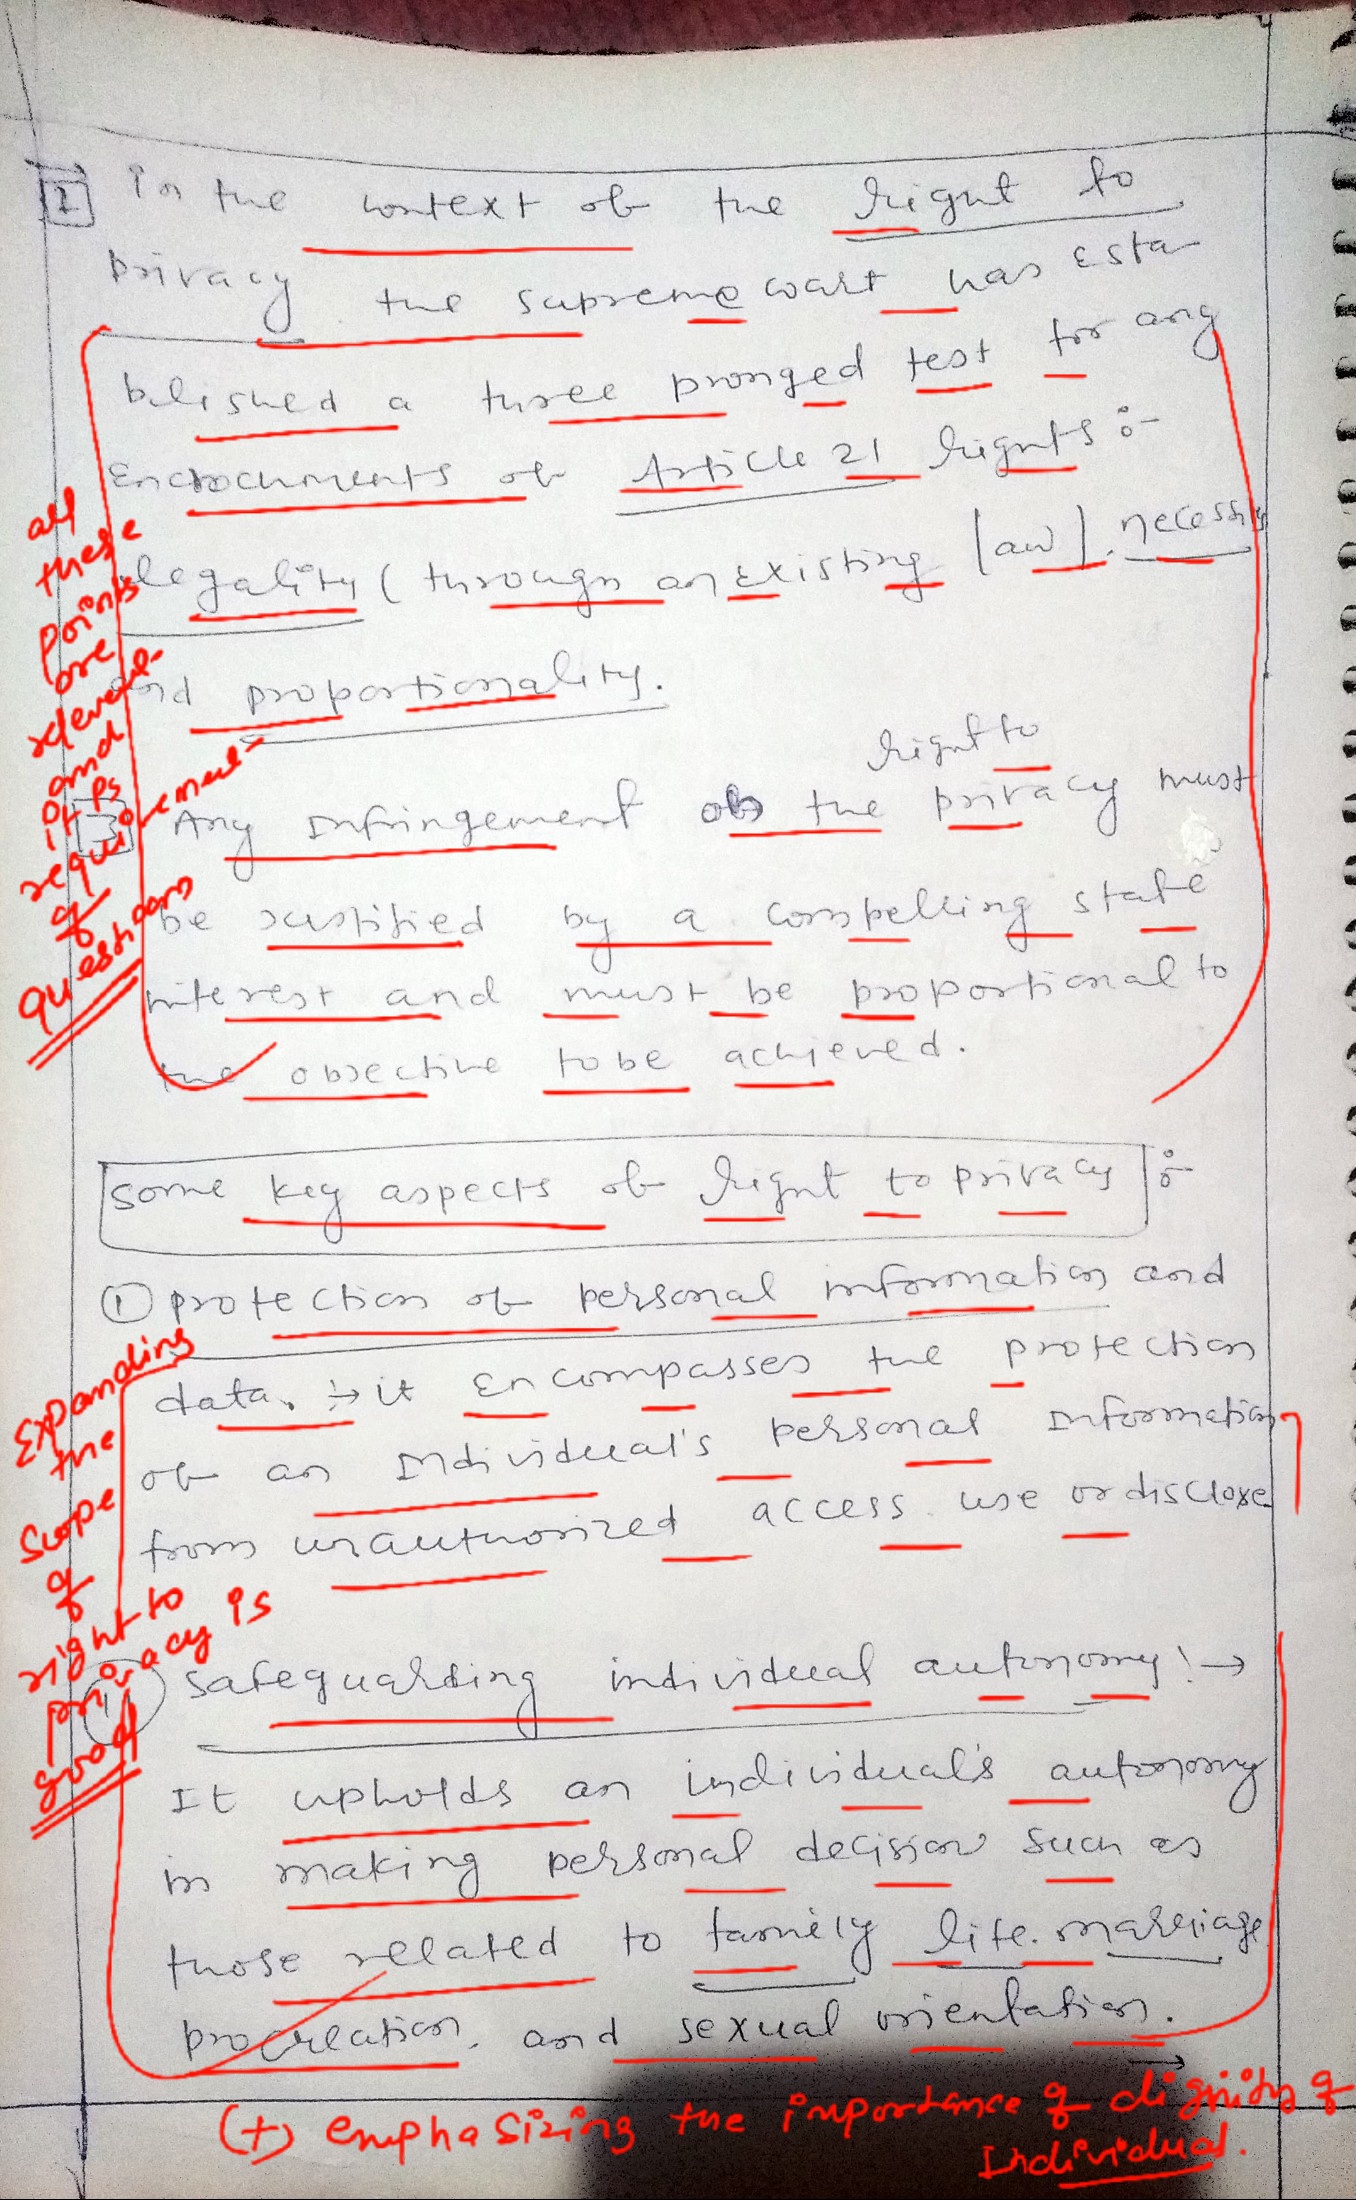 1 In the context of the right to
privacy the supreme court has esta
blished a three pronged test for any
Encrochments of Article 21 rights :-
legality ( through an existing law ). necessity
and proportionality.
right to
Any Infringement of the privacy must
be justified by a compelling state
interest and must be proportional to
the objective to be achieved.
all
these
points
are
relevent
and
it ps
requirement
of
questions
some key aspects of right to privacy :-
① protection of personal information and
data. :→ it Encompasses the protection
of an Individual's personal Information
from unauthorized access. use or disclose
Expanding
the
scope
of
right to
privacy is
good
safeguarding individual autonomy! →
It upholds an individual's autonomy
in making personal decision such as
those related to family life. marriage
procreation. and sexual orientation.
(+) emphasizing the importance of dignity of
Individual.